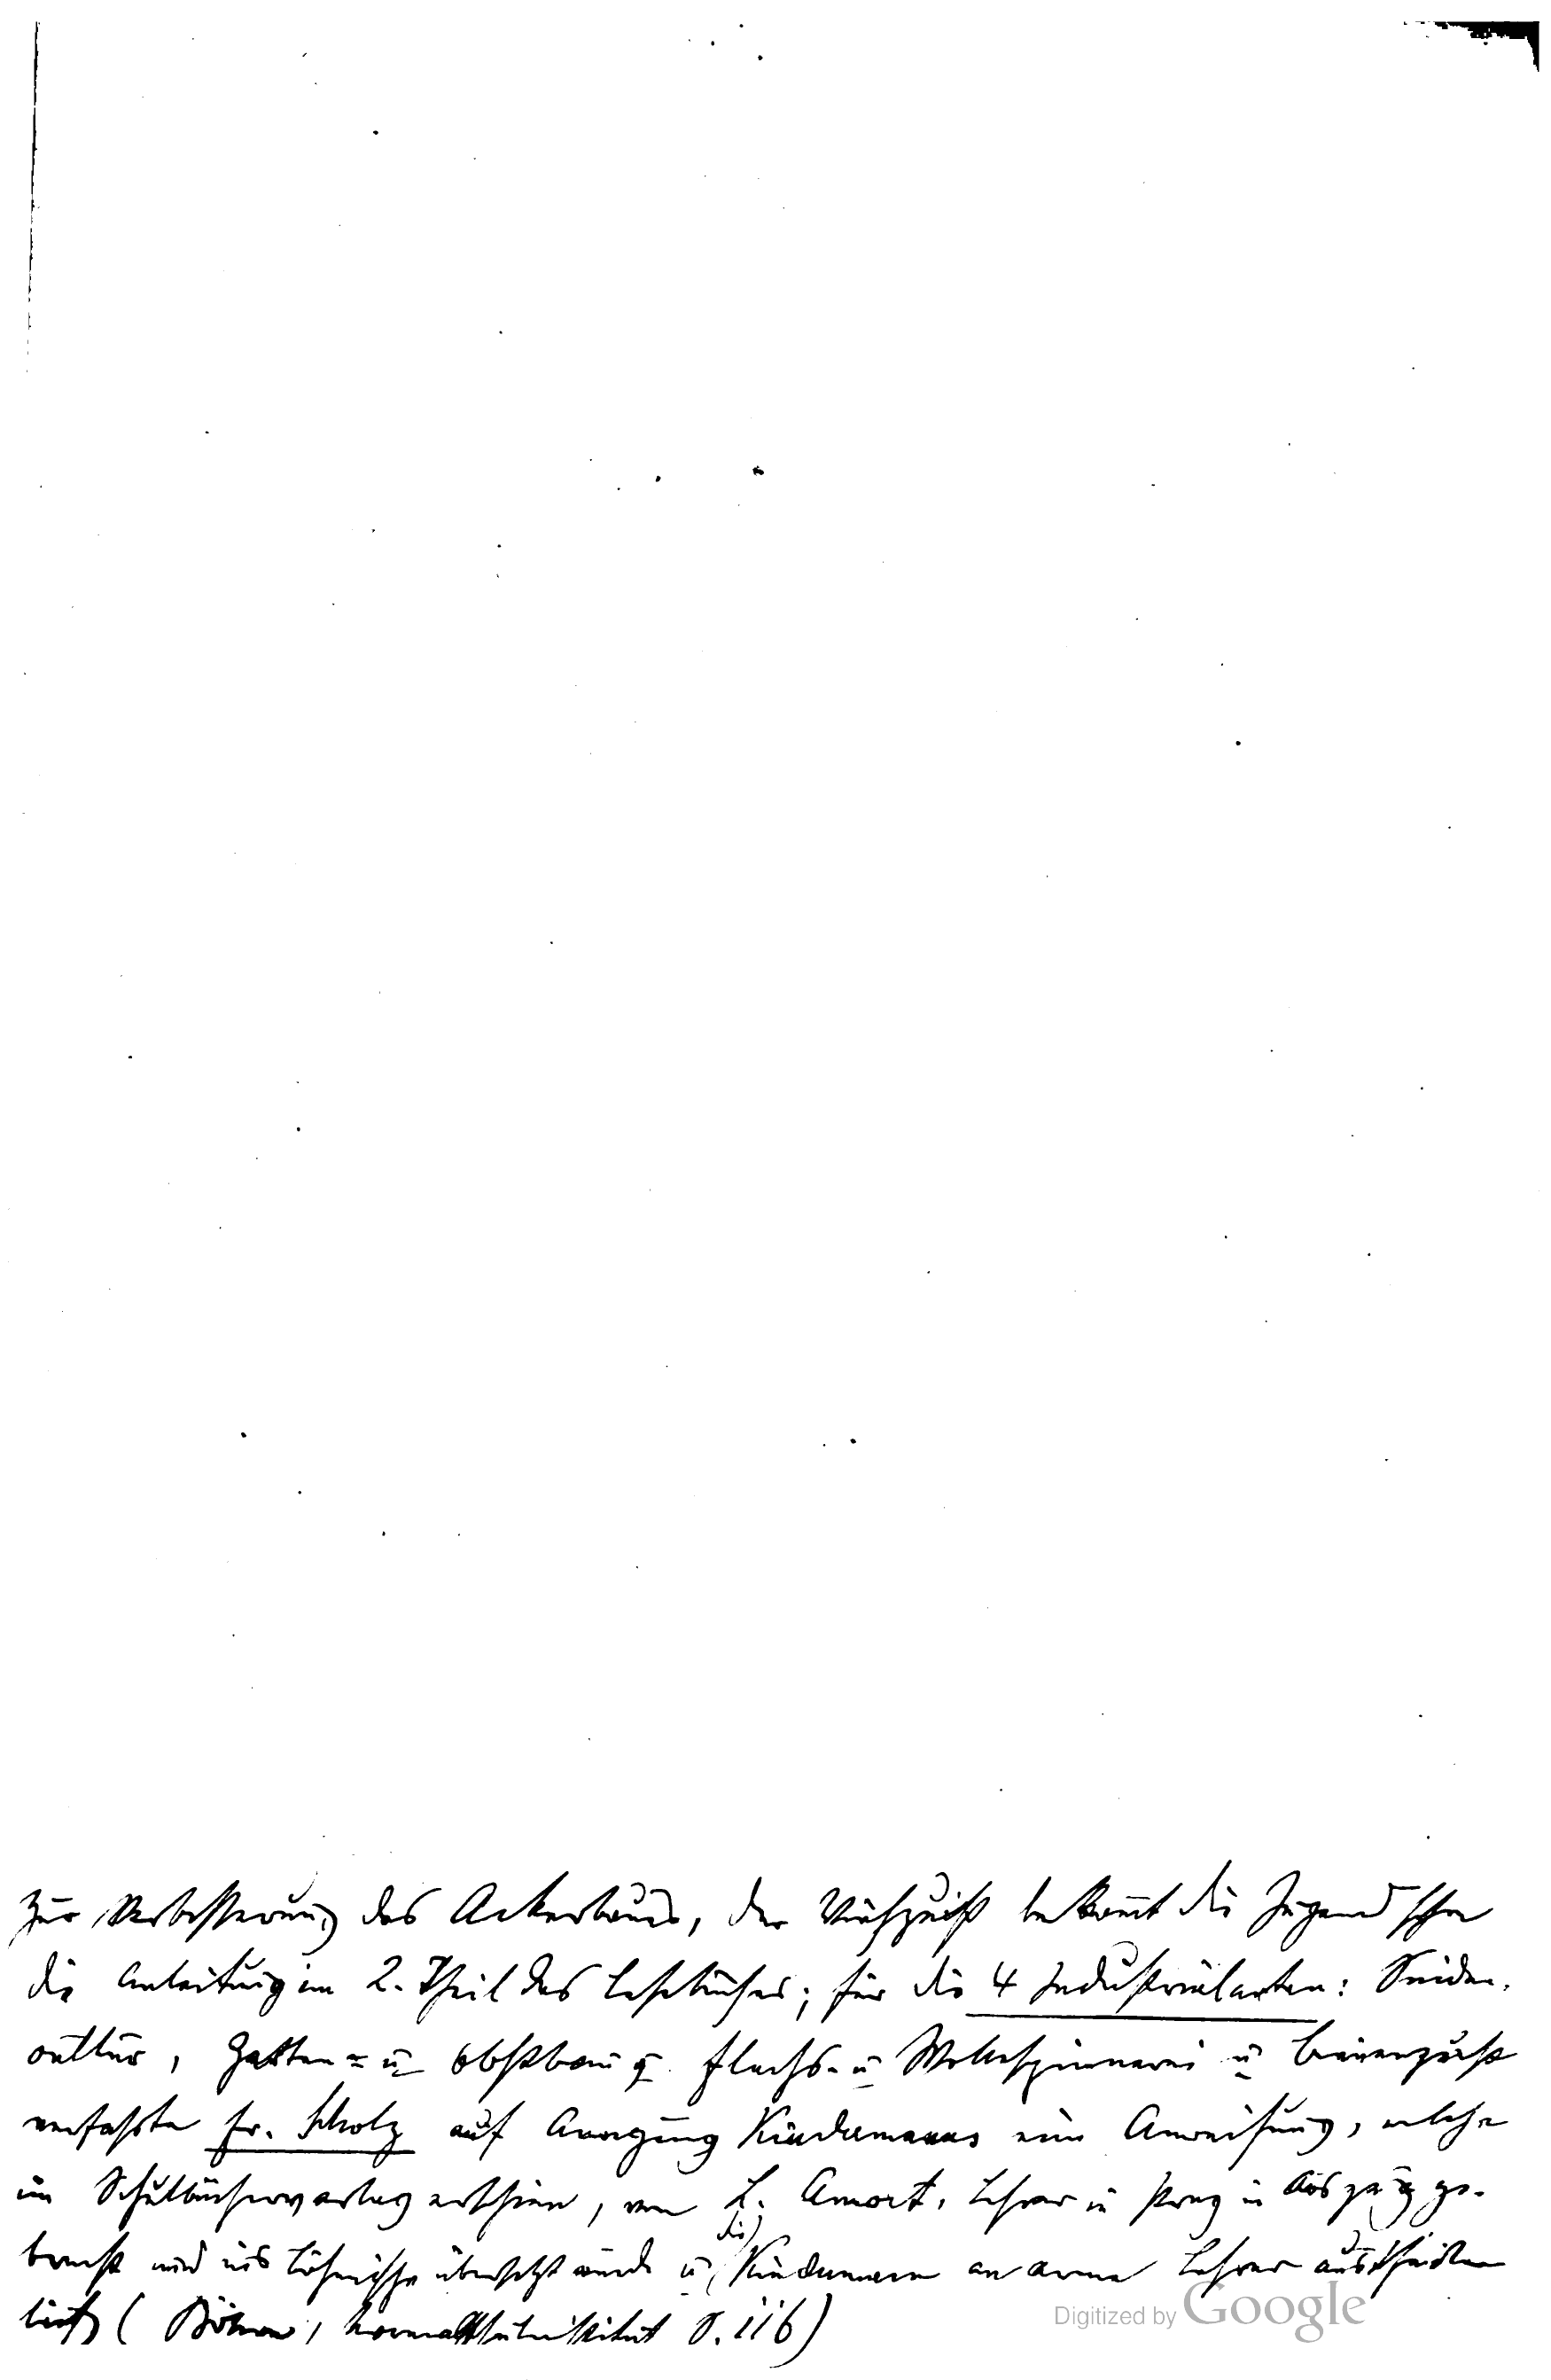 Zur Verbesserung des Ackerbaues, der Viehzucht bekommt die Jugend schon
die Anleitung im 2. Theil des Lesebuches; für die 4 Industrialarten: Seiden-
cultur, Garten- u Obstbau, Flachs- u Wollespinnerei u Bienenzucht
verfaßte Fr. Scholz auf Anregung Kindermanns eine Anweisung, welche
im Schulbücherverlag erschien, von L. Amort, Lehrer in Prag in Auszug ge-
bracht und ins böhmische übersetzt wurde u (die) Kindermann an arme Lehrer austheilen
ließ ( Böhm, Normalschulinstitut S. 116)
Digitized by Google